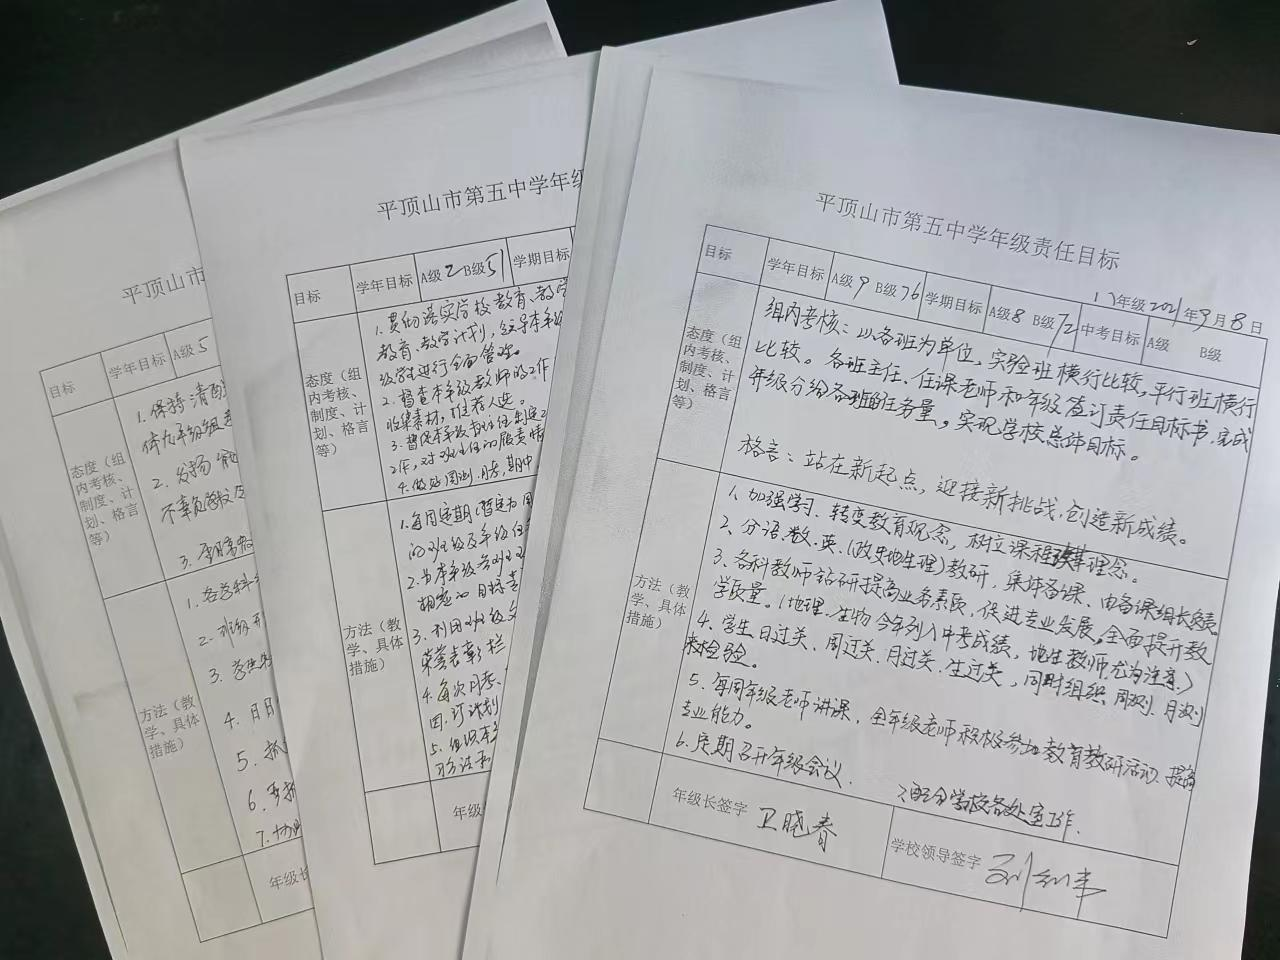 平顶山市
目标 学年目标 A级 5
态度（组
内考核、
制度、计
划、格言
等）
1. 保持清
2. 发扬
不辜负学校
3.
方法（教
学、具体
措施）
1. 各学科
2. 班级
3.
4. 月月
5. 抓
6.
7. 协
年级长
平顶山市第五中学年级
目标 学年目标 A级 2 B级 51 学期目标
态度（组
内考核、
制度、计
划、格言
等）
1. 贯彻落实学校教育、教学
教育、教学计划，领导本年级
级学生进行全面管理。
2. 督查本年级教师的工作
收集素材，推荐人选。
3. 督促本年级班主任制定
工作，对班主任的履责情
4. 做好周测、月考、期中
方法（教
学、具体
措施）
1. 每周定期（暂定为周
的班级及年级任
2. 与本年级各班
相应的目标责
3. 利用班级文
荣誉表彰栏
4. 每次月考、
因、订计划
5. 组织本
年级
平顶山市第五中学年级责任目标
年级 2021 年 9 月 8 日
目标 学年目标 A级 9 B级 76 学期目标 A级 8 B级 72 中考目标 A级 B级
态度（组
内考核、
制度、计
划、格言
等）
组内考核：以各班为单位，实验班横行比较，平行班横行
比较。各班主任、任课老师和年级签订责任目标书，完成
年级分给各班的任务量。实现学校总体目标。
格言：站在新起点，迎接新挑战，创造新成绩。
方法（教
学、具体
措施）
1. 加强学习、转变教育观念，树立课程改革理念。
2. 分语、数、英、（政史地生理）教研，集体备课，由备课组长负责。
3. 各科教师钻研提高业务素质，促进专业发展。全面提升教
学质量。（地理、生物今年列入中考成绩，地生教师尤为注意。）
4. 学生日过关、周过关、月过关、生过关，同时组织周测、月测
来检验。
5. 每周年级老师讲课，全年级老师积极参加教育教研活动、提高
专业能力。
6. 定期召开年级会议。 7. 配合学校各处室工作.
年级长签字 卫晓春 学校领导签字